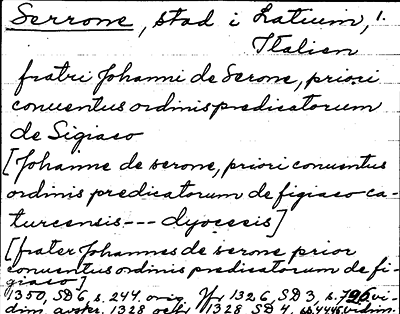 Serrone, stad i Latium, 1.
Italien
fratri Johanni de Serone, priori
conuentus ordinis predicatorum
de Sigiaco
[Johanne de serone, priori conuentus
ordinis predicatorum de figiaco ca-
turcensis --- dyocesis]
[frater Johannes de serone prior
conuentus ordinis predicatorum de fi-
giaco]
1350, SD 6, s. 244. orig. Jfr 1326, SD 3, s. 796 vi-
dim. avskr. 1328 och 1328 SD 4. s. 4446 vidim.